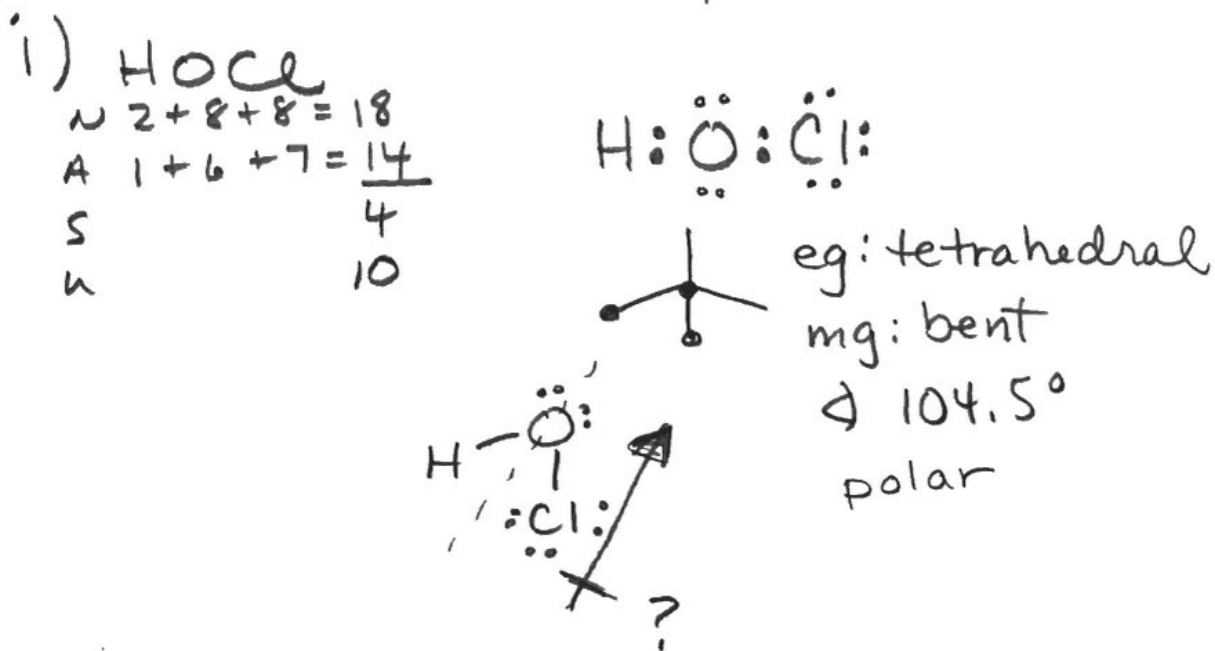 i) HOCl
N 2+8+8=18
A 1+6+7=14
S 4
u 10
H:O:Cl:
eg: tetrahedral
mg: bent
∢ 104.5°
polar
H O
:Cl:
?